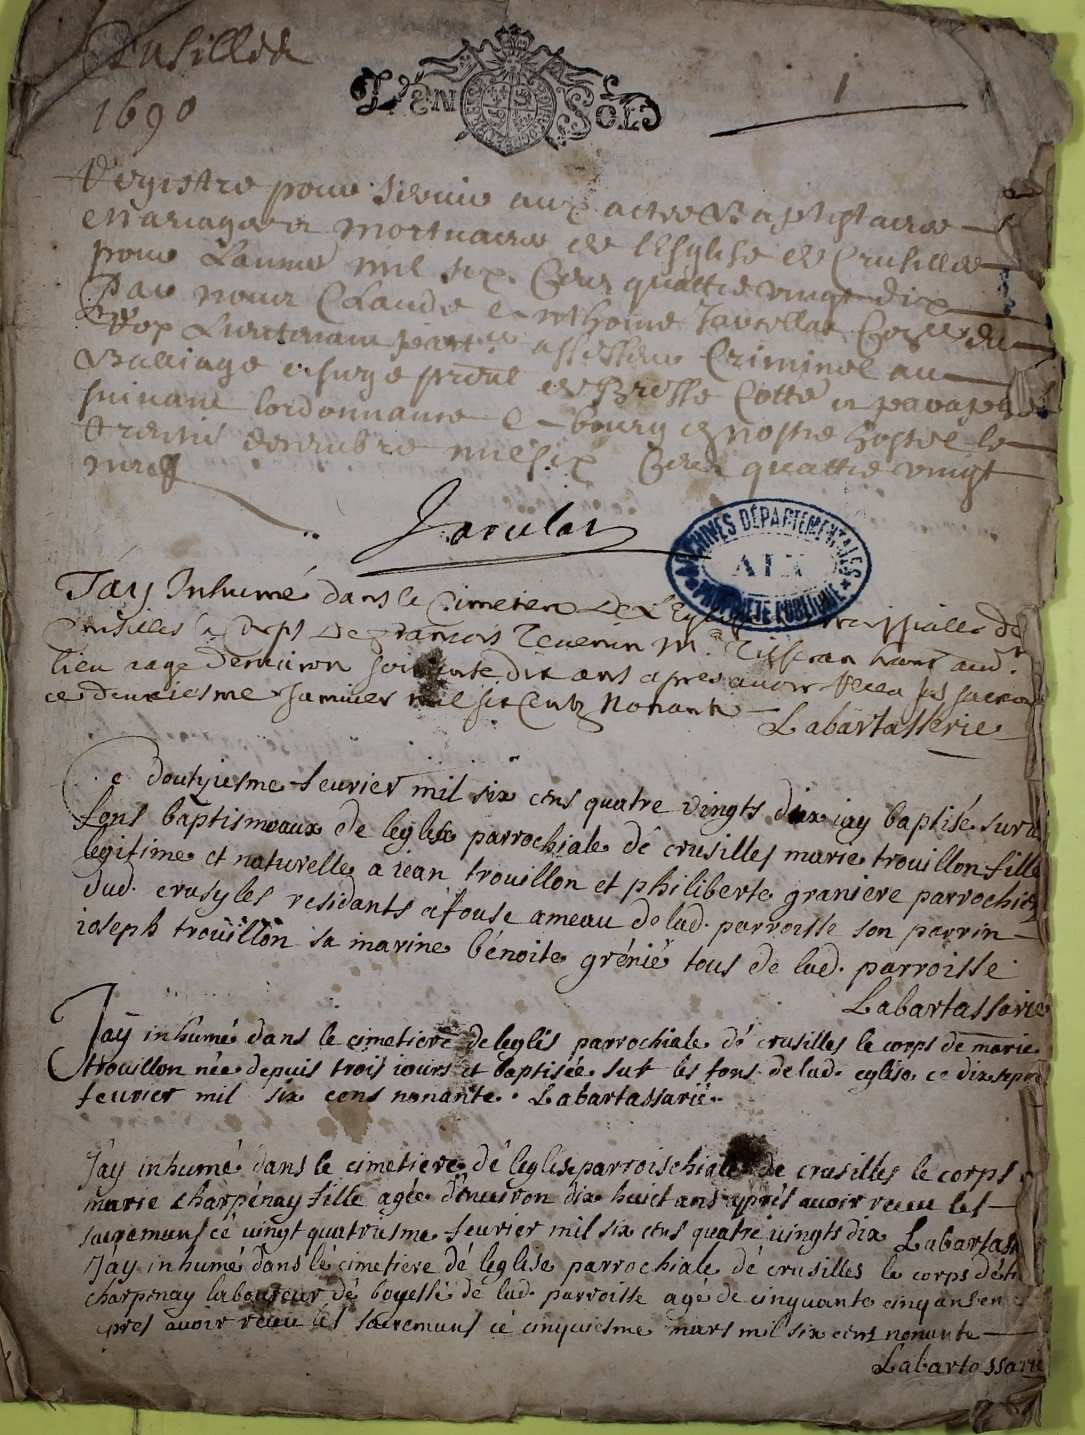 Crusilles
1690
VN SOL
1
Registre pour servir aux actes Baptistaires
Mariages et mortuaires de lesglise de Crusilles
pour Lannee mil six Cens quattre vingt dix
Par nous Claude Anthoine Con.er du
Roy Lieutenant assesseur Criminel au
Balliage et siege p.real de Bresse Cotté et parapé
suivant lordonnance A bourg en nostre hostel le
decembre mil six Cens quattre vingt
neuf
ARCHIVES DÉPARTEMENTALES
AIN
PROPRIÉTÉ PUBLIQUE
Jay Inhumé dans le Cimetiere De L'Eglise parroissialle de
Crusilles le Corps De francois Tevenin M.e Tisseran aud.
lieu aagé Denviron soixante dix ans apres avoir Receu ses sacrem
ce deuxiesme Janvier mil six Centz Nonante
Labartasserie
Ce doutziesme feuvrier mil six cens quatre vingts dix iay baptisé sur le
fons baptismaux de leglise parrochiale dé crusilles marie trouillon fille
legitime et naturelle a iean trouillon et philiberte graniere parrochiens
dud. crusyles residants a fouse ameau de lad. parroisse son parrin
ioseph trouillon sa marine bénoite grénié tous de lad. parroisse
Labartassarie
Jay inhumé dans le cimetiere de leglis parrochiale dé crusilles le corps de marie
trouillon née depuis trois iours et baptisée sut les fons de lad. eglise ce dix sept
feuvrier mil six cens nonante. Labartassarie
Jay inhumé dans le cimetiere dé leglise parroischiale de crusilles le corps
marie charpénay fille agée dénuiron dix huict ans aprés avoir receu les
sacremens cé vingt quatriesme feuvrier mil six cens quatre vingts dix Labartass
Jay inhumé dans lé cimetiere dé leglise parrochiale dé crusilles le corps dé
charpenay laboureur dé boyessé de lad. parroisse agé de cinquante cinq ans en
pres avoir receu les sacremens cé cinquiesme mars mil six cens nonante
Labartassarie